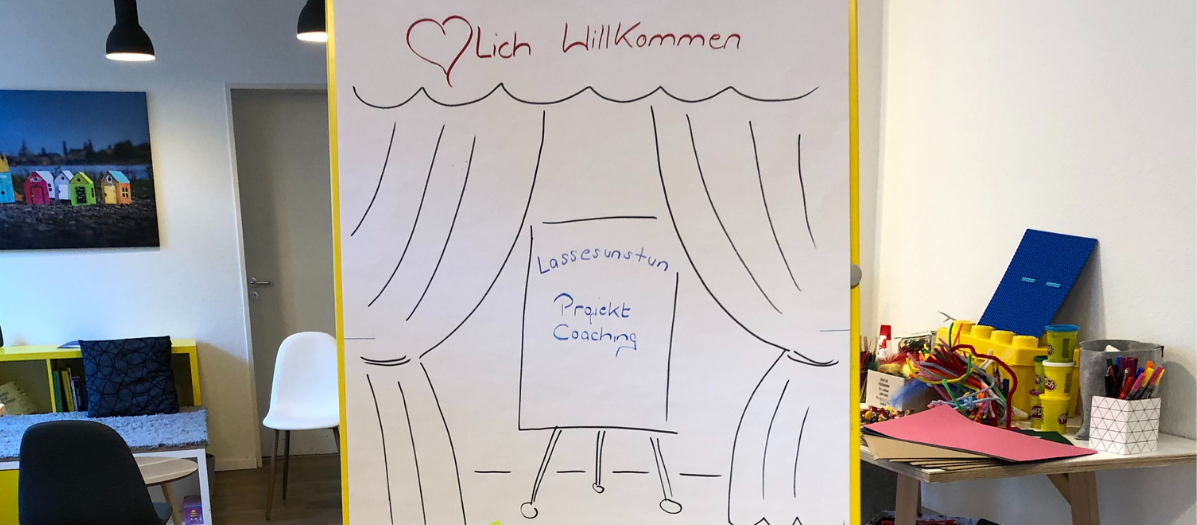 Lich Willkommen
Lassesunstun
Projekt
Coaching